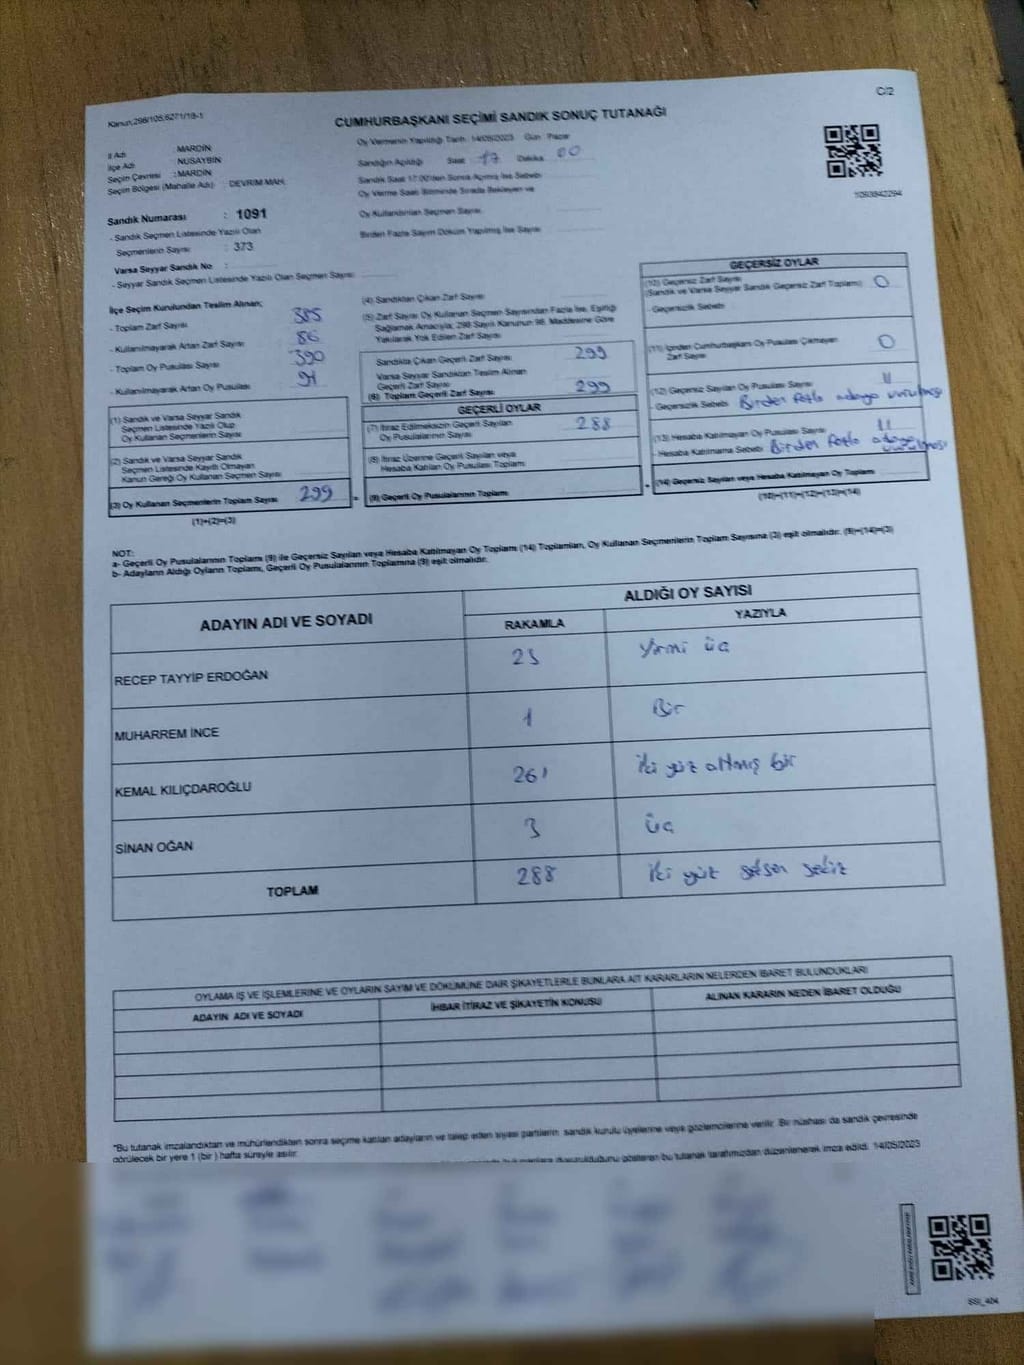 C/2
Kanun,298/105,6271/18-1
CUMHURBAŞKANI SEÇİMİ SANDIK SONUÇ TUTANAĞI
İl Adı : MARDİN
İlçe Adı : NUSAYBİN
Seçim Çevresi : MARDİN
Seçim Bölgesi (Mahalle Adı) : DEVRİM MAH.
Oy Vermenin Yapıldığı Tarih 14/05/2023 Gün Pazar
Sandığın Açıldığı Saat 17 Dakika 00
Sandık Saat 17:00'den Sonra Açılmış İse Sebebi
Oy Verme Saati Bitiminde Sırada Bekleyen ve
Oy Kullandırılan Seçmen Sayısı
Birden Fazla Sayım Döküm Yapılmış İse Sayısı
1093942294
Sandık Numarası : 1091
- Sandık Seçmen Listesinde Yazılı Olan
Seçmenlerin Sayısı : 373
Varsa Seyyar Sandık No :
- Seyyar Sandık Seçmen Listesinde Yazılı Olan Seçmen Sayısı
İlçe Seçim Kurulundan Teslim Alınan;
- Toplam Zarf Sayısı 385
- Kullanılmayarak Artan Zarf Sayısı 86
- Toplam Oy Pusulası Sayısı 390
- Kullanılmayarak Artan Oy Pusulası 91
(1) Sandık ve Varsa Seyyar Sandık
Seçmen Listesinde Yazılı Olup
Oy Kullanan Seçmenlerin Sayısı
(2) Sandık ve Varsa Seyyar Sandık
Seçmen Listesinde Kayıtlı Olmayan
Kanun Gereği Oy Kullanan Seçmen Sayısı
(3) Oy Kullanan Seçmenlerin Toplam Sayısı 299
(1)+(2)=(3)
(4) Sandıktan Çıkan Zarf Sayısı
(5) Zarf Sayısı Oy Kullanan Seçmen Sayısından Fazla İse, Eşitliği
Sağlamak Amacıyla; 298 Sayılı Kanunun 98. Maddesine Göre
Yakılarak Yok Edilen Zarf Sayısı
Sandıkta Çıkan Geçerli Zarf Sayısı 299
Varsa Seyyar Sandıktan Teslim Alınan
Geçerli Zarf Sayısı
(6) Toplam Geçerli Zarf Sayısı 299
GEÇERLİ OYLAR
(7) İtiraz Edilmeksizin Geçerli Sayılan
Oy Pusulalarının Sayısı 288
(8) İtiraz Üzerine Geçerli Sayılan veya
Hesaba Katılan Oy Pusulası Toplamı
(9) Geçerli Oy Pusulalarının Toplamı
GEÇERSİZ OYLAR
(10) Geçersiz Zarf Sayısı
(Sandık ve Varsa Seyyar Sandık Geçersiz Zarf Toplamı) 0
- Geçersizlik Sebebi
(11) İçinden Cumhurbaşkanı Oy Pusulası Çıkmayan
Zarf Sayısı 0
(12) Geçersiz Sayılan Oy Pusulası Sayısı 11
- Geçersizlik Sebebi Birden fazla adaya vurulması
(13) Hesaba Katılmayan Oy Pusulası Sayısı 11
- Hesaba Katılmama Sebebi Birden fazla adaya vurulması
(14) Geçersiz Sayılan veya Hesaba Katılmayan Oy Toplamı
(10)+(11)+(12)+(13)=(14)
NOT:
a- Geçerli Oy Pusulalarının Toplamı (9) ile Geçersiz Sayılan veya Hesaba Katılmayan Oy Toplamı (14) Toplamları, Oy Kullanan Seçmenlerin Toplam Sayısına (3) eşit olmalıdır. (9)+(14)=(3)
b- Adayların Aldığı Oyların Toplamı, Geçerli Oy Pusulalarının Toplamına (9) eşit olmalıdır.
ADAYIN ADI VE SOYADI
ALDIĞI OY SAYISI
RAKAMLA YAZIYLA
RECEP TAYYİP ERDOĞAN 23 yirmi üç
MUHARREM İNCE 1 Bir
KEMAL KILIÇDAROĞLU 261 iki yüz altmış bir
SİNAN OĞAN 3 üç
TOPLAM 288 iki yüz seksen sekiz
OYLAMA İŞ VE İŞLEMLERİNE VE OYLARIN SAYIM VE DÖKÜMÜNE DAİR ŞİKAYETLERLE BUNLARA AİT KARARLARIN NELERDEN İBARET BULUNDUKLARI
ADAYIN ADI VE SOYADI İHBAR İTİRAZ VE ŞİKAYETİN KONUSU ALINAN KARARIN NEDEN İBARET OLDUĞU
"Bu tutanak imzalandıktan ve mühürlendikten sonra seçime katılan adayların ve talep eden siyasi partilerin, sandık kurulu üyelerine veya gözlemcilerine verilir. Bir nüshası da sandık çevresinde
görülecek bir yere 1 (bir) hafta süreyle asılır.
bu tutanak tarafımızdan düzenlenerek imza edildi. 14/05/2023
SSI_404